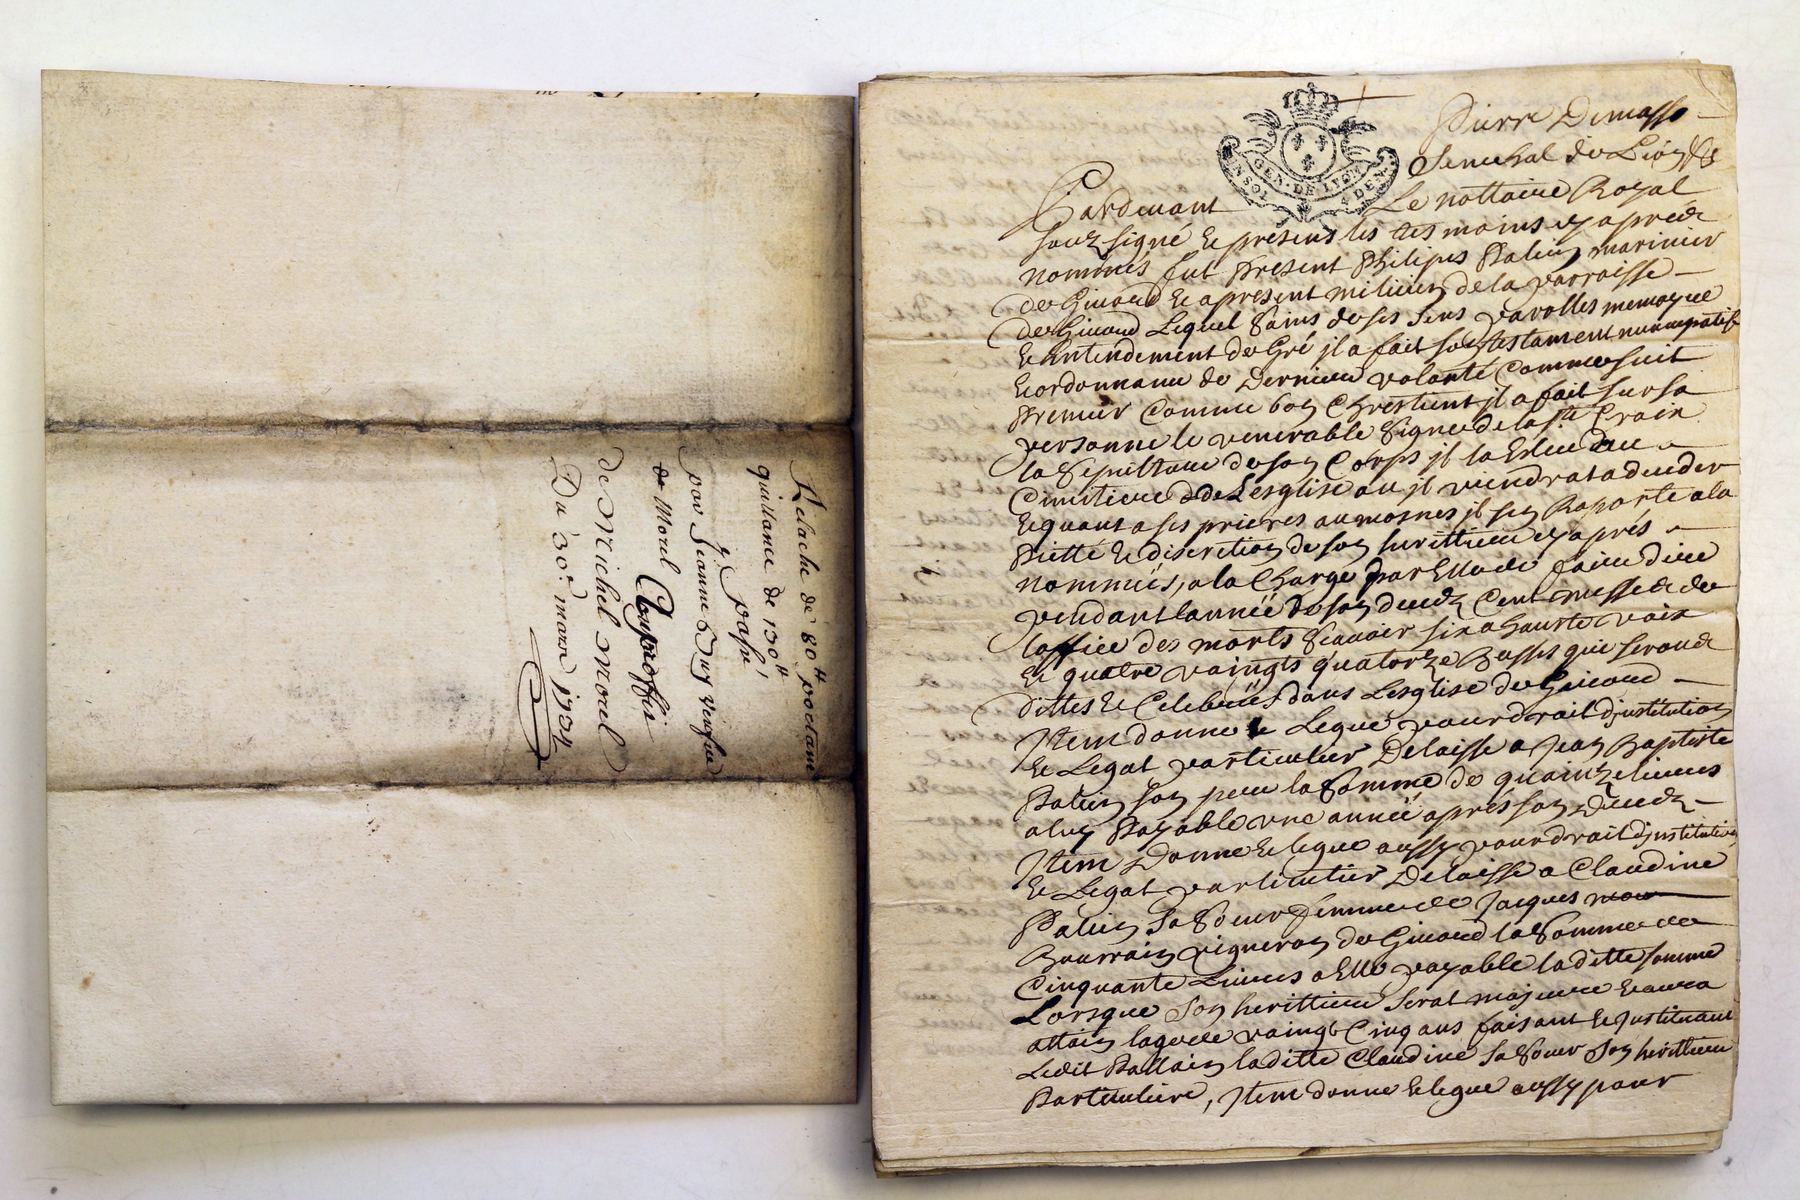 Relache de 80ᵗᵗ portant
quittance de 130ᵗᵗ
passé
par Jeanne Duy veufue
de Morel
de Michel Morel
Du 30e mars 1724
Pierre Demasso
Senechal de Lion &
GEN · DE LYON
Pardeuant Le nottaire Royal
souz signé & présens les tesmoins cy apréz
nommés fut Present Philipes Palin marinier
de Giuord & apresent milicien de la parroisse
de Giuord Lequel sains de ses sens parolles memoyre
& Entendement de Gré il a fait son testament nuncupatif
& ordonnance de Derniere volonté Comme suit
Premier Comme bon Chrestient il a fait sur sa
personne le venerable signe de la ste Croix
la Sepulture de son Corps il la Esleu au
Cimitiere de Lesglise ou il viendrat a deceder
& quant a ses prieres aumosnes il s'en Raporte a la
Pietté & discretion de son herittiere cy aprés
nommées, a la Charge par Elle de faire dire
pendant lannée de son decedz Cent messes de
loffice des morts scauoir six a haute voix
& quatre vaingts quatorze Basses qui seront
dittes & Celebrées dans Lesglise de Giuord
Item donne & Legue pour droit d'institution
& Legat particulier Delaisse a Jean Baptiste
Palin son pere la somme de quainze liures
a luy Payable vne année aprés son decedz
Item Donne & legue aussy pour droit d'institution
& Legat particulier Delaisse a Claudine
Palin sa soeur femme de Jacques
Bourrain vigneron de Giuord la somme de
Cinquante Liures a Elle payable la ditte somme
Lorsque son herittiere serat majeure & aura
attain lage de vaingt Cinq ans faisant & Instituant
Ledit Pallain laditte Claudine sa soeur son herittiere
Particuliere, Item donne & legue aussy pour